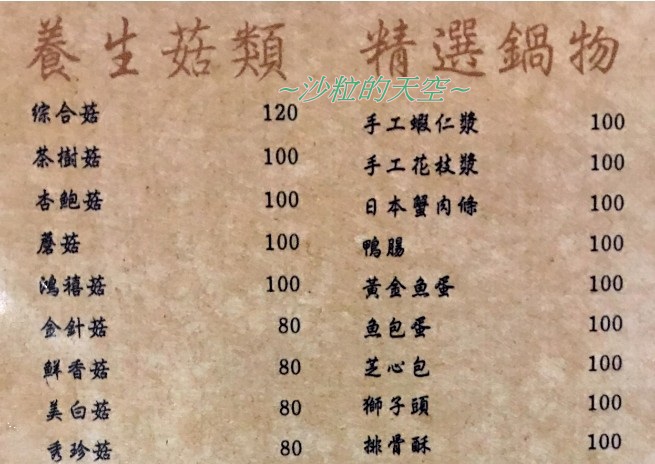 養生菇類
綜合菇 120
茶樹菇 100
杏鮑菇 100
蘑菇 100
鴻禧菇 100
金針菇 80
鮮香菇 80
美白菇 80
秀珍菇 80
精選鍋物
~沙粒的天空~
手工蝦仁漿 100
手工花枝漿 100
日本蟹肉條 100
鴨腸 100
黃金魚蛋 100
魚包蛋 100
芝心包 100
獅子頭 100
排骨酥 100